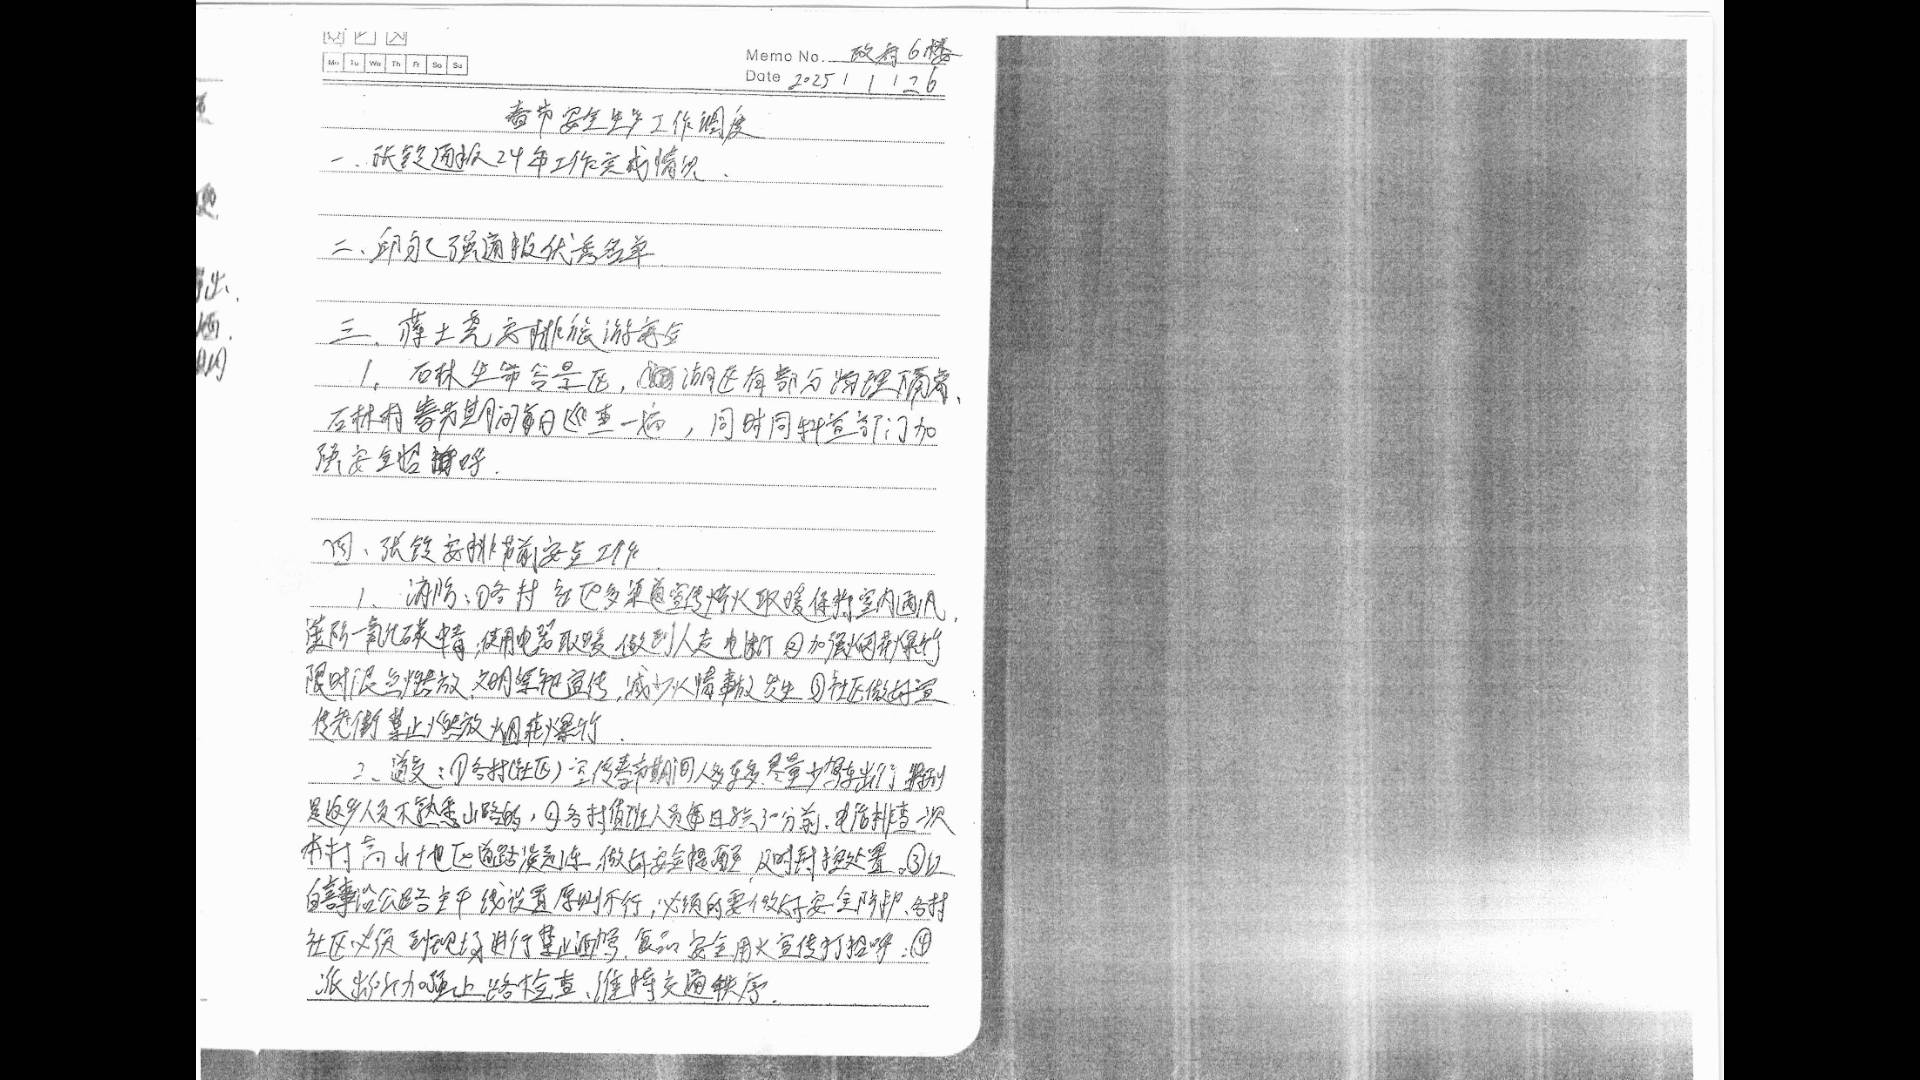 Mo Tu We Th Fr Sa Su
Memo No. 政府6楼
Date 2025 / 1 / 26
春节安全生产工作调度
一、张钦通报24年工作完成情况.
二、邱永强通报优秀名单
三、薛士尧安排旅游安全
1、石林生命谷景区, 湖区有部分物理隔离、
石林村春节期间每日巡查一遍, 同时同科宣部门加
强安全招呼.
四、张钦安排节前安全工作
1、消防:①各村 社区多渠道宣传烤火取暖保持室内通风,
谨防一氧化碳中毒,使用电器取暖 做到人走电断 ②加强烟花爆竹
限时限点燃放、文明祭祀宣传, 减少火情事故发生 ③社区做好宣
传老街禁止燃放烟花爆竹.
2、道交:①各村(社区)宣传春节期间人多车多.尽量少驾车出行 特别
是返乡人员不熟悉山路的, ②各村值班人员每日 分前、电话排查一次
本村高山地区道路凝冻, 做好安全提醒 及时封控处置.③红
白喜事沿公路主干线设置原则不行,必须的要做好安全防护、各村
社区必须到现场进行禁止酒驾、食品安全用火宣传打招呼:④
派出所加强上路检查、维持交通秩序.
出、